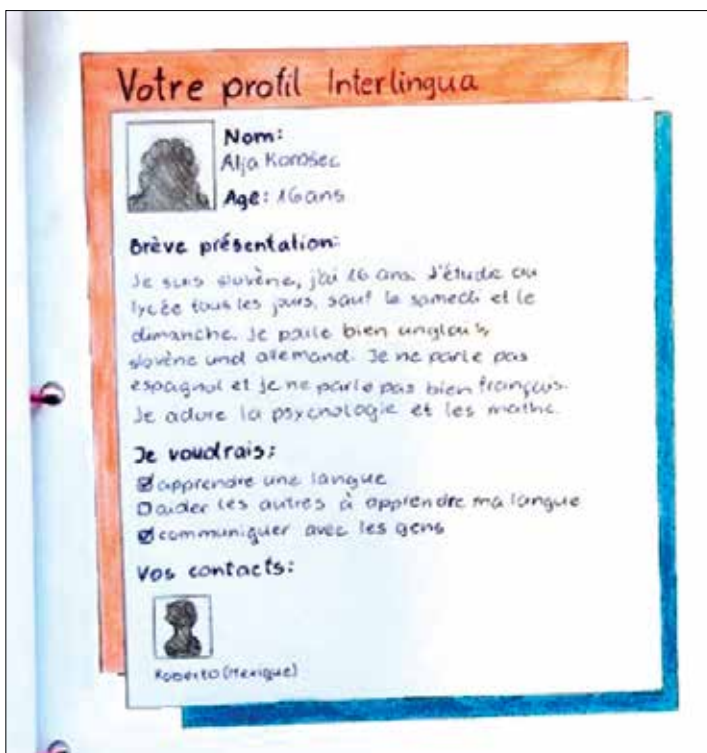 Votre profil Interlingua
Nom:
Alja Korošec
Age: 16 ans
Brève présentation:
Je suis slovène, j'ai 16 ans. J'étudie au
lycée tous les jours, sauf le samedi et le
dimanche. Je parle bien
slovène und allemand. Je ne parle pas
espagnol et je ne parle pas bien français.
Je adore la psychologie et les maths.
Je voudrais:
apprendre une langue
aider les autres à apprendre ma langue
communiquer avec les gens
Vos contacts:
Roberto (Mexique)